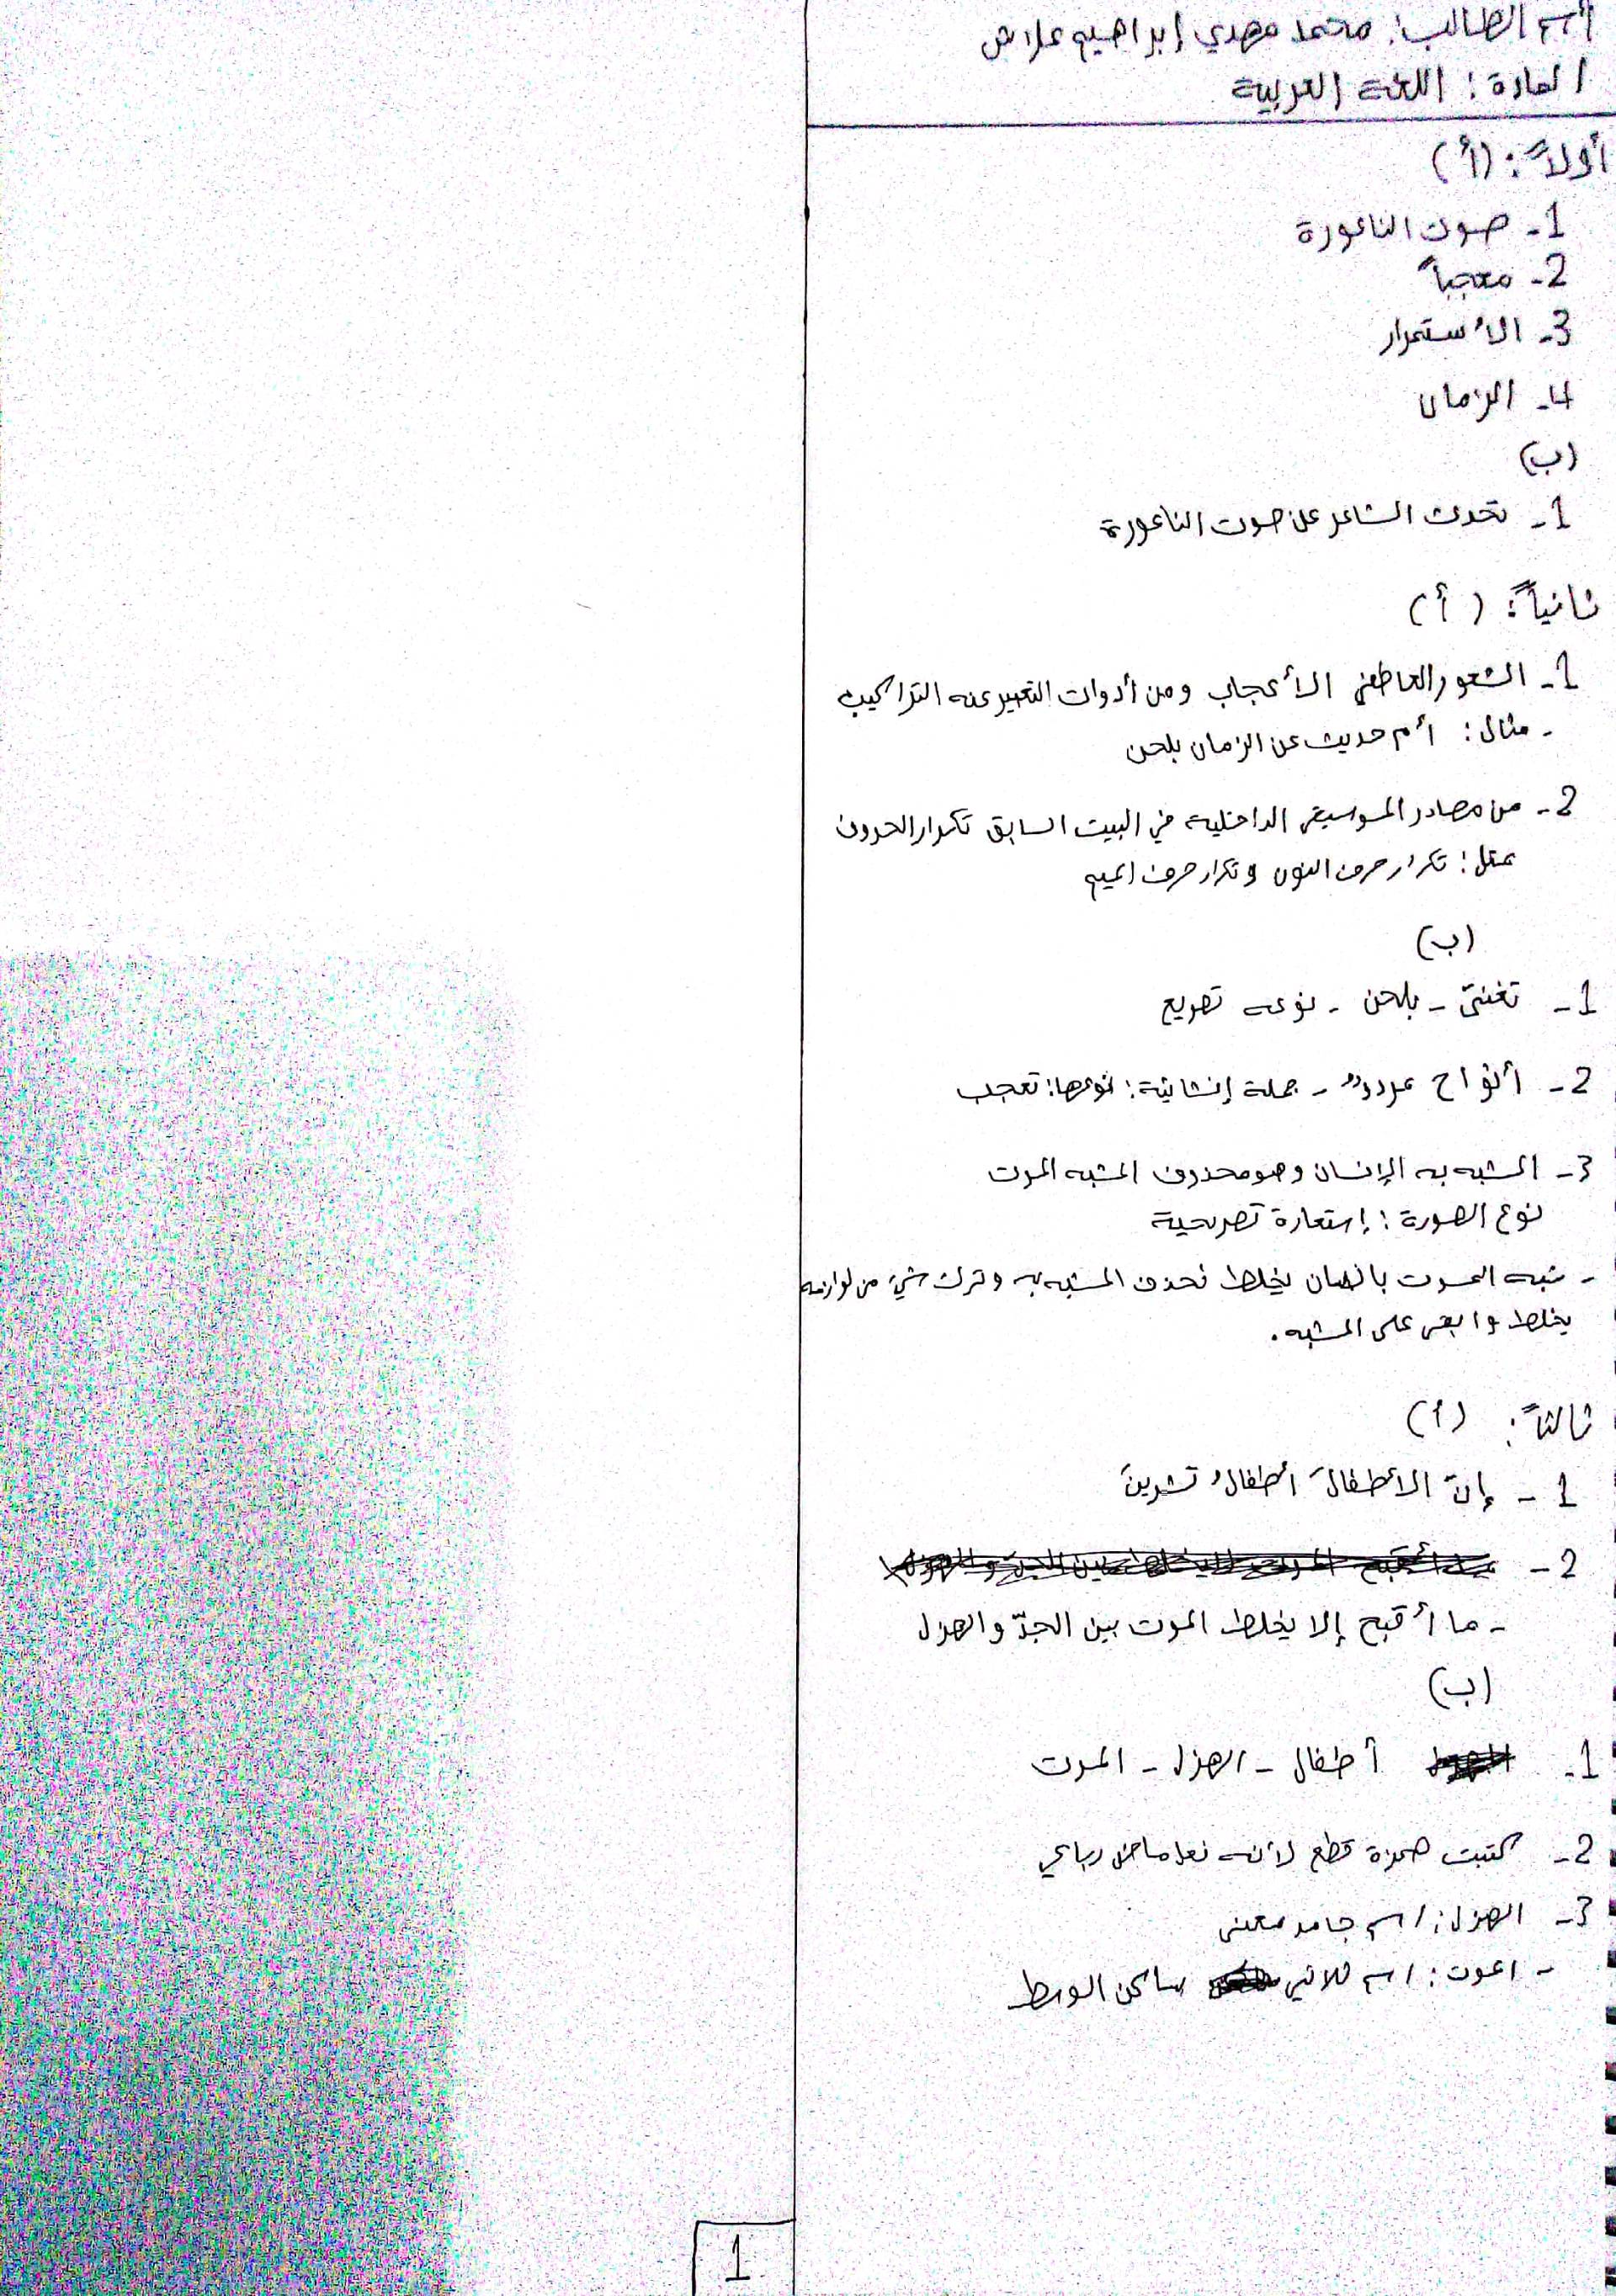 أسم الطالب: محمد مهدي إبراهيم علاص
المادة: اللغة العربية
أولاً: (أ)
1- صوت الناعورة
2- معجباً
3- الأستمرار
4- الزمان
(ب)
1- تحدث الشاعر عن صوت الناعورة
ثانياً: (أ)
1- الشعور العاطفي الأعجاب ومن أدوات التعبير عنه التراكيب
- مثال: أم حديث عن الزمان بلحن
2- من مصادر الموسيقى الداخلية في البيت السابق تكرار الحروف
مثل: تكرار حرف النون و تكرار حرف الميم
(ب)
1- تغنّى - بلحن - نوعه تصريع
2- أنواح - جملة إنشائية: نوعها: تعجب
3- المشبه به الإنسان وهو محذوف المشبه الموت
نوع الصورة: إستعارة تصريحية
- شبه الموت بانسان يخلط فحذف المشبه به وترك شيء من لوازمه
يخلط وابقى على المشبه.
ثالثاً: (أ)
1- إنّ الأطفالَ أطفالُ تشرينَ
2-
- ما أقبح إلا يخلط الموت بين الجدّ والهزل
(ب)
1- أطفال - الهزل - الموت
2- كتبت همزة قطع لأنه فعل ماض رباعي
3- الهزل: اسم جامد معنى
- الموت: اسم ثلاثي ساكن الوسط
1